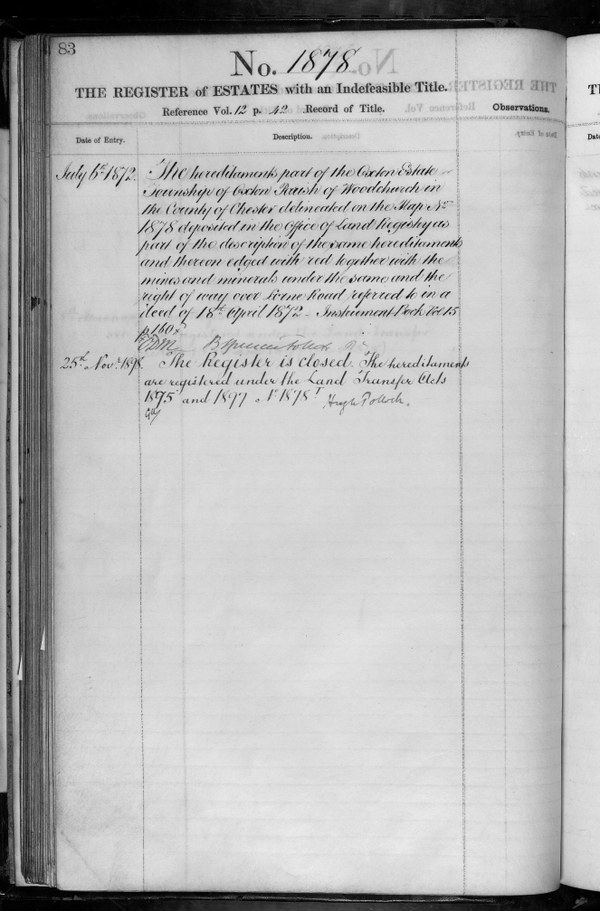 83
No. 1878
THE REGISTER of ESTATES with an Indefeasible Title.
Reference Vol. 12 p. 42 Record of Title.
Observations.
Date of Entry.
Description.
July 6th 1872. The hereditaments part of the Oxton Estate
Township of Oxton Parish of Woodchurch in
the County of Chester delineated on the Map No
1878 deposited in the Office of Land Registry as
part of the description of the same hereditaments
and thereon edged with red together with the
mines and minerals under the same and the
right of way over Lorne Road referred to in a
deed of 18th April 1872 - Instrument Book Vol 15
p 160
25th Novr 1898. The Register is closed. The hereditaments
are registered under the Land Transfer Acts
1875 and 1897 No 1878 Hugh Pollock.